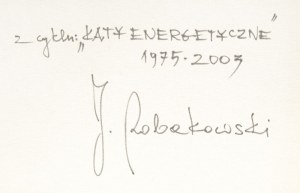 z cyklu: „KĄTY ENERGETYCZNE”
1975-2003
J. Robakowski